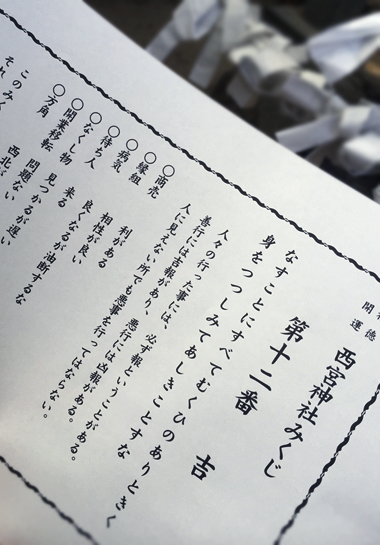 開運
西宮神社みくじ
第十二番 吉
なすことにすべてむくひのありときく
身をつつしみてあしきことすな
人々の行った事には、必ず報ということがある。
善行には吉報があり、悪行には凶報がある。
人に見えない所でも悪事を行ってはならない。
○商売 利がある
○縁組 相性が良い
○病気 良くなるが油断するな
○待ち人 来る
○なくし物 見つかるが遅い
○開業移転 問題ない
○方角 西北が
このみく
それ